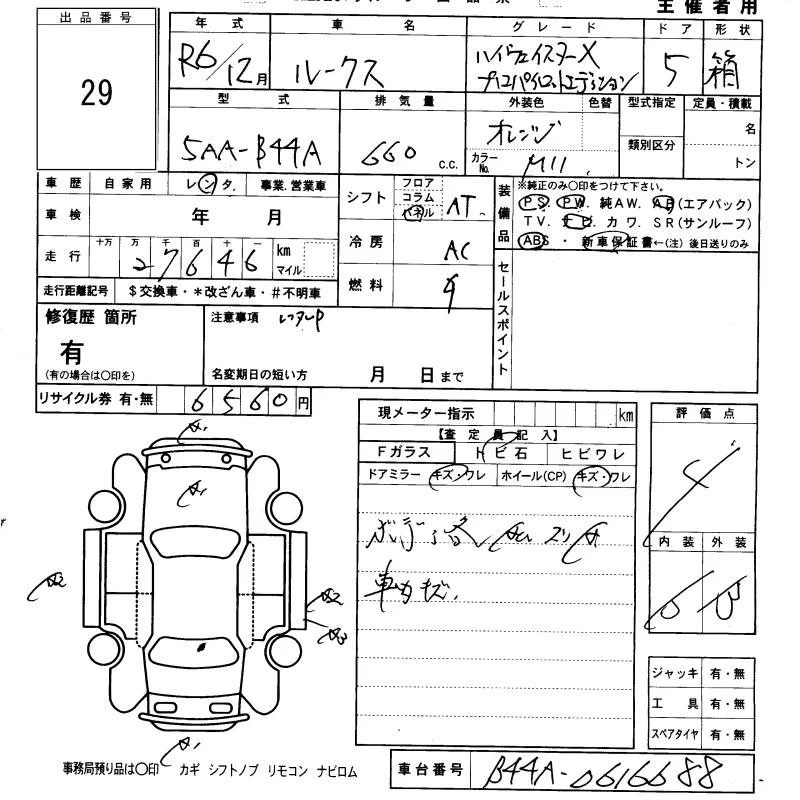 主催者用
出品番号
29
年式 車名 グレード ドア 形状
R6/12月 ルークス ハイウェイスターX
プロパイロットエディション 5 箱
型式 排気量 外装色 色替 型式指定 定員・積載
5AA-B44A 660 c.c. オレンジ 名
類別区分
カラーNo. M11 トン
車歴 自家用 レンタ. 事業.営業車
車検 年 月
走行 十万 万 千 百 十 一
27646 km マイル
走行距離記号 $交換車・*改ざん車・#不明車
シフト フロア コラム パネル AT
冷房 AC
燃料
装備品 ※純正のみ〇印をつけて下さい。
PS. PW. 純AW. AB(エアバック)
TV. カワ. SR(サンルーフ)
ABS・新車保証書←(注)後日送りのみ
セールスポイント
修復歴 箇所
有
(有の場合は〇印を)
注意事項 レンタUP
名変期日の短い方 月 日まで
リサイクル券 有・無 6560円
現メーター指示 km
【査定員記入】
Fガラス トビ石 ヒビワレ
ドアミラー キズ・ワレ ホイール(CP) キズ・ワレ
車内キズ.
評価点
4
内装 外装
A1
A1
A2
A2
A1
ジャッキ 有・無
工具 有・無
スペアタイヤ 有・無
事務局預り品は〇印 カギ シフトノブ リモコン ナビロム
車台番号 B44A-0616688